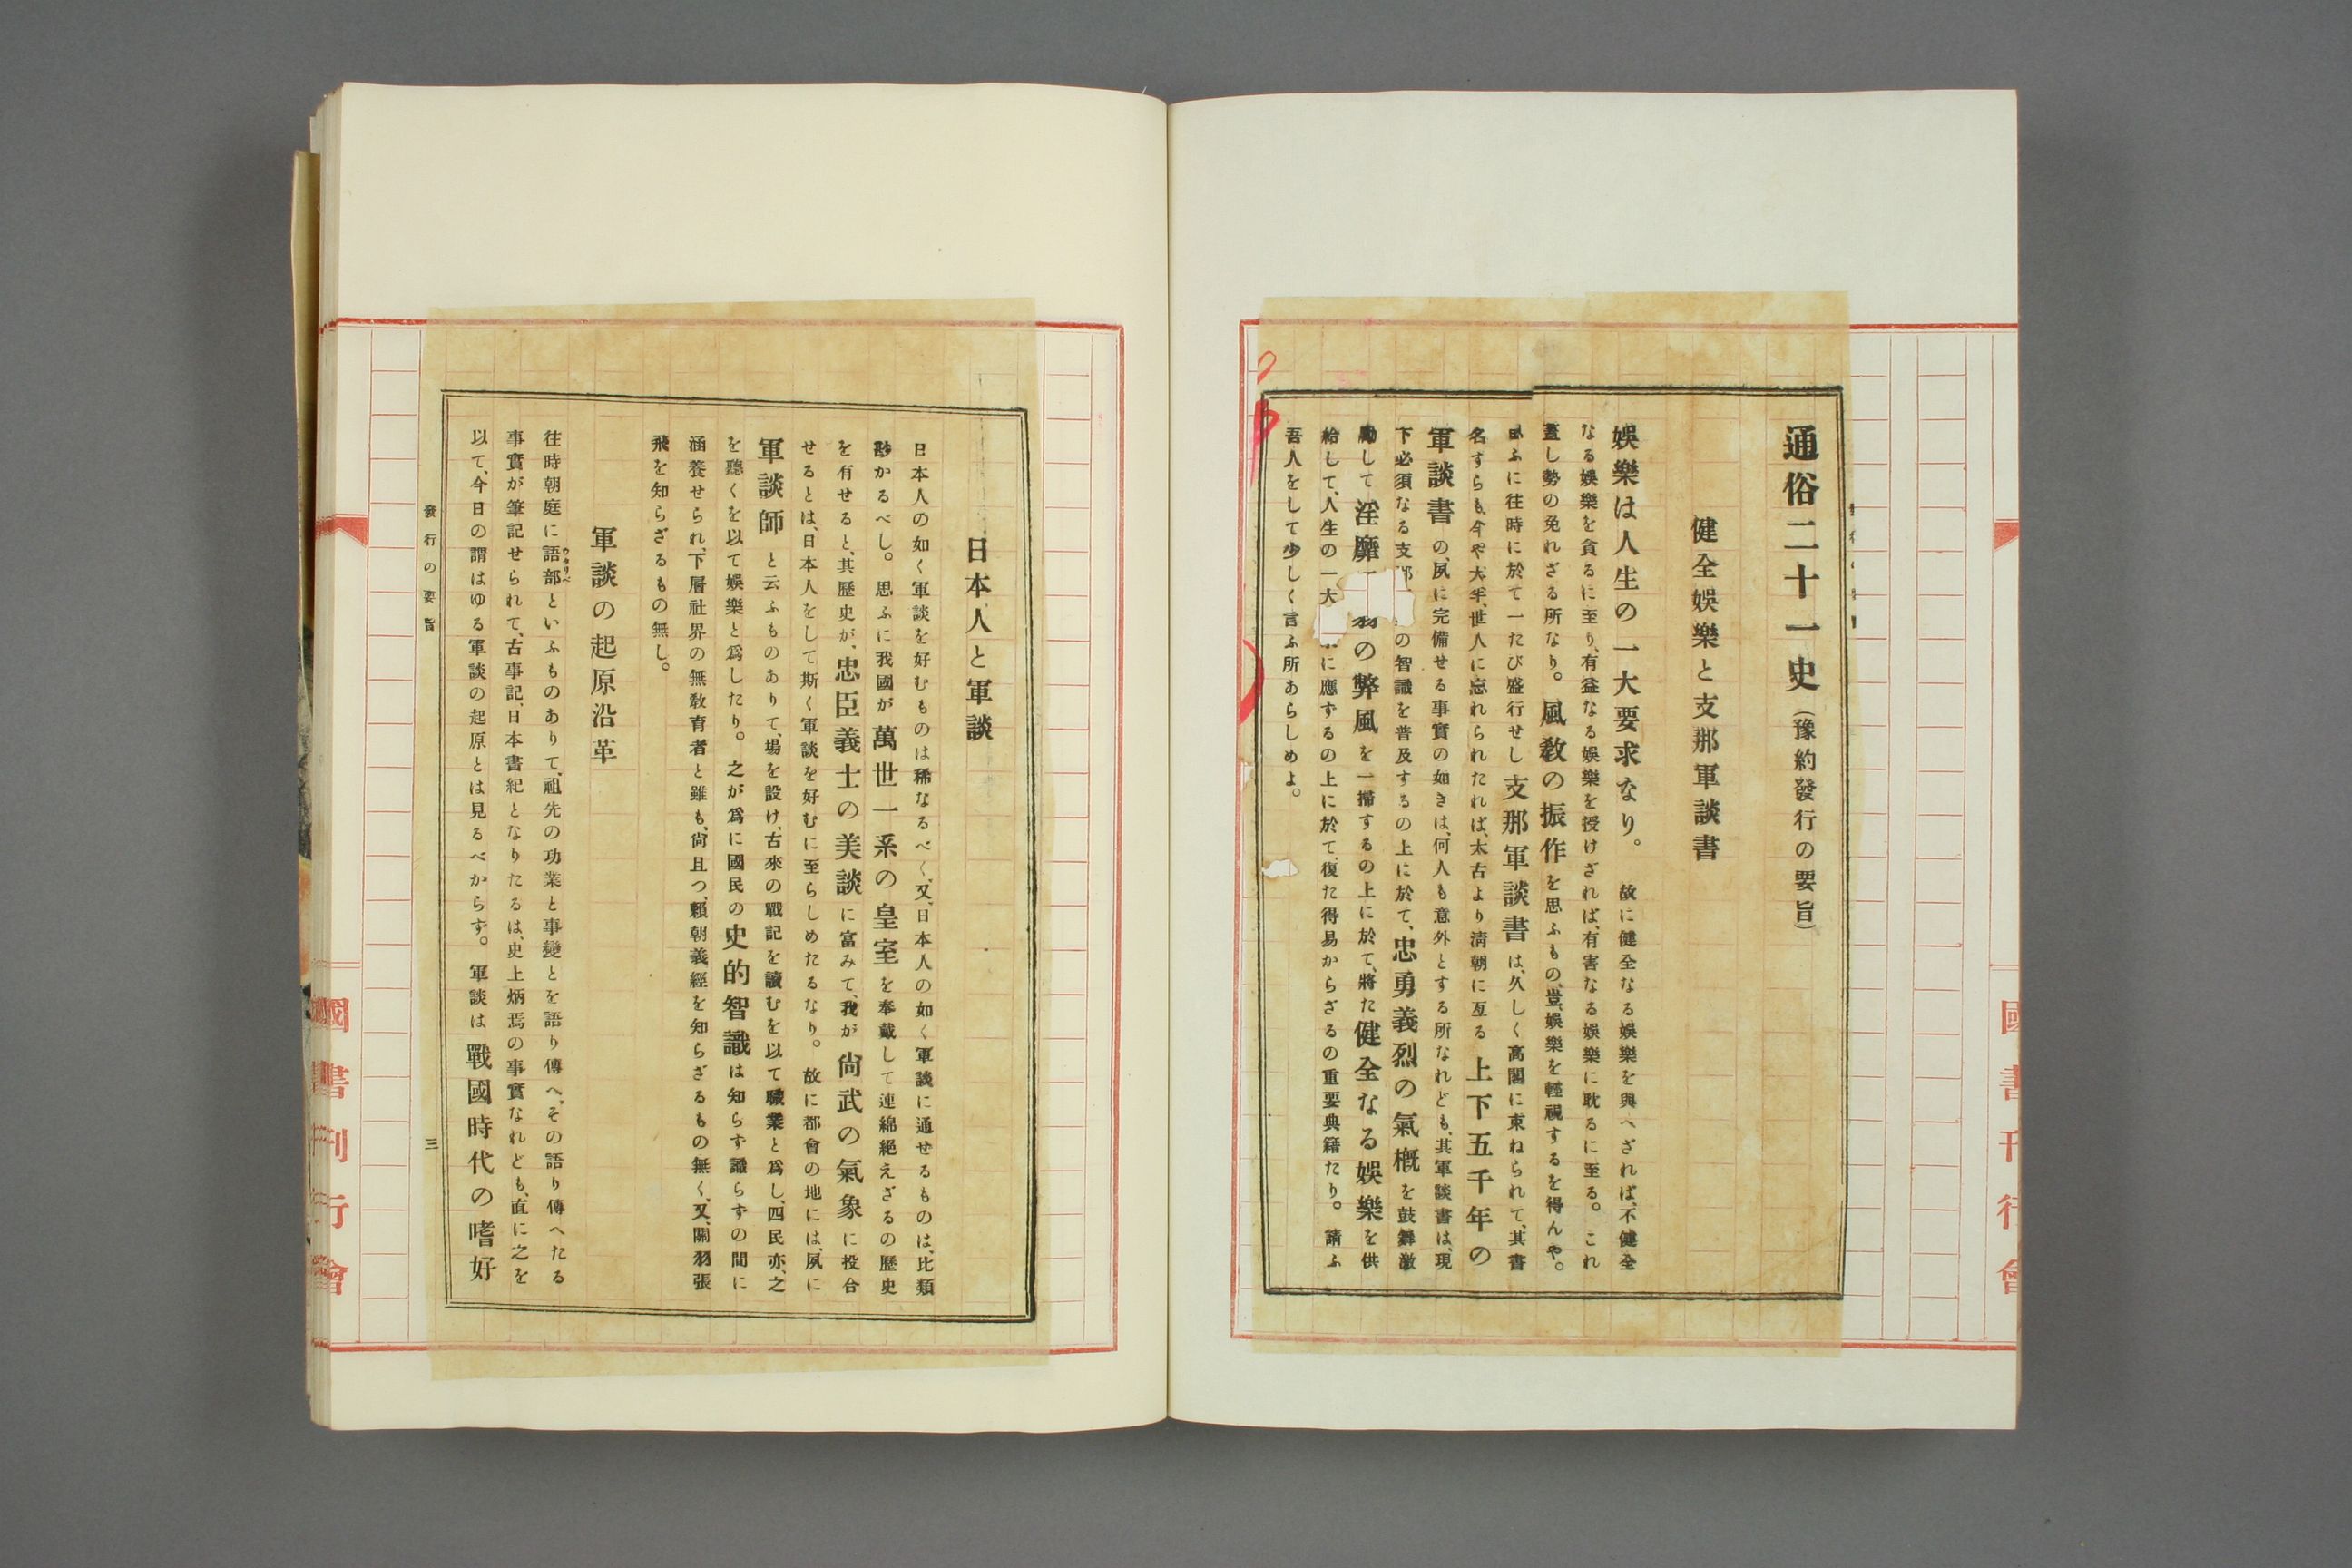 通俗二十一史（豫約發行の要旨）
健全娯樂と支那軍談書
娯樂は人生の一大要求なり。故に健全なる娯樂を與へざれば、不健全
なる娯樂を貪るに至り、有益なる娯樂を授けざれば、有害なる娯樂に耽るに至る。これ
蓋し勢の免れざる所なり。風敎の振作を思ふもの、豈娯樂を輕視するを得んや。
ふに往時に於て一たび盛行せし支那軍談書は、久しく高閣に束ねられて、其書
名すらも、今や、大半、世人に忘れられたれば、太古より淸朝に亙る上下五千年の
軍談書の、夙に完備せる事實の如きは、何人も意外とする所なれども、其軍談書は、現
下必須なる支の智識を普及するの上に於て、忠勇義烈の氣槪を皷舞激
勵して淫靡の弊風を一掃するの上に於て、將た健全なる娯樂を供
給して、人生の一大に應ずるの上に於て、復た得易からざるの重要典籍たり。請ふ
吾人をして少しく言ふ所あらしめよ。
國書刊行會
日本人と軍談
日本人の如く軍談を好むものは稀なるべく、又、日本人の如く軍談に通ぜるものは、比類
尠かるべし。思ふに我國が萬世一系の皇室を奉戴して連綿絕えざるの歷史
を有せると、其歷史が、忠臣義士の美談に富みて、我が尙武の氣象に投合
せるとは、日本人をして斯く軍談を好むに至らしめたるなり。故に都會の地には、夙に
軍談師と云ふものありて、場を設け、古來の戰記を讀むを以て職業と爲し、四民亦、之
を聽くを以て娯樂と爲したり。之が爲に國民の史的智識は知らず識らずの間に
涵養せられ、下層社界の無敎育者と雖も、尙且つ、賴朝義經を知らざるもの無く、又、關羽張
飛を知らざるもの無し。
軍談の起原沿革
往時朝庭に語部といふものありて、祖先の功業と事變とを語り傳へ、その語り傳へたる
事實が筆記せられて、古事記、日本書紀となりたるは、史上炳焉の事實なれども、直に之を
以て、今日の謂はゆる軍談の起原とは見るべからず。軍談は戰國時代の嗜好
發行の要旨
三
國書刊行會